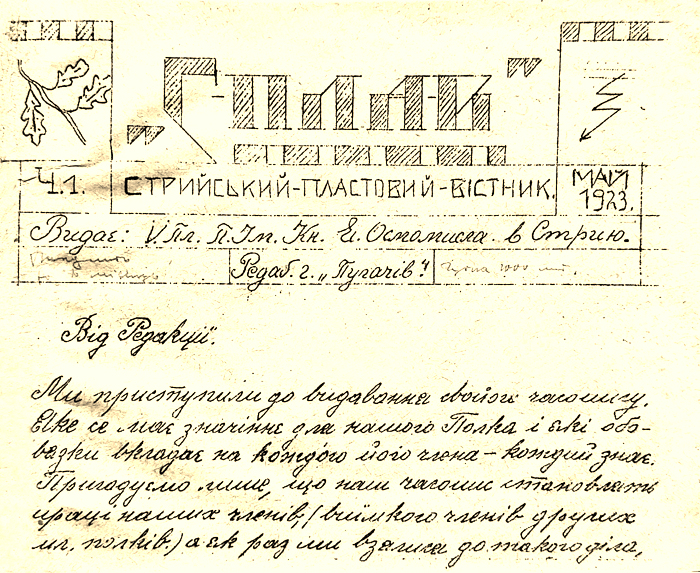 Ч.1. СТРИЙСЬКИЙ-ПЛАСТОВИЙ-ВІСТНИК. МАЙ 1923.
Видає: V Пл. П. Ім. Кн. Я. Осмомисла в Стрию.
Редаб. г. „Пугачів"! Ціна 1000 мп.
Від Редакції.
Ми приступили до видавання свойого часопису.
Яке се має значіннє для нашого Полка і які обо-
вязки вкладає на кождого його члена – кождий знає.
Пригадуємо лише, що наш часопис становлять
праці наших членів, (виїмково членів других
пл. полків.) а як раз ми взялися до такого діла,